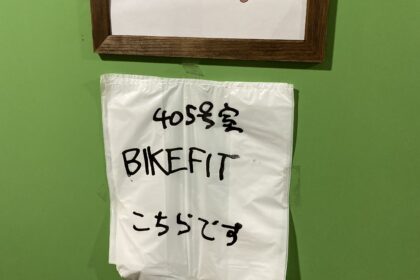 405号室
BIKEFIT
こちらです